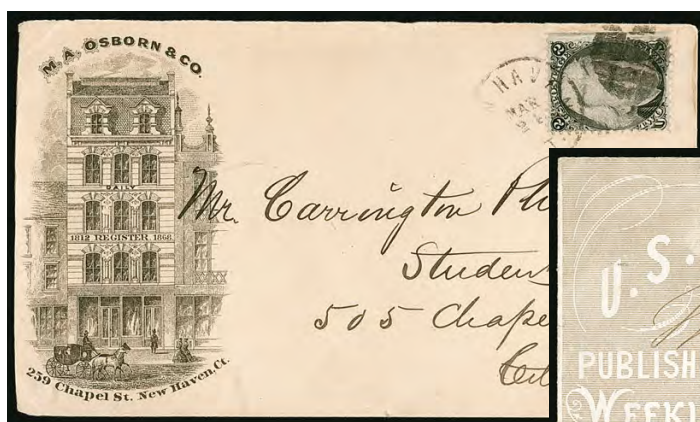 M. A. OSBORN & CO.
DAILY
1812 REGISTER 1868
259 Chapel St. New Haven, Ct.
HAV
MAR
Mr. Carrington Ph
Studen
505 Chape
U.S.
PUBLISH
WEEKL